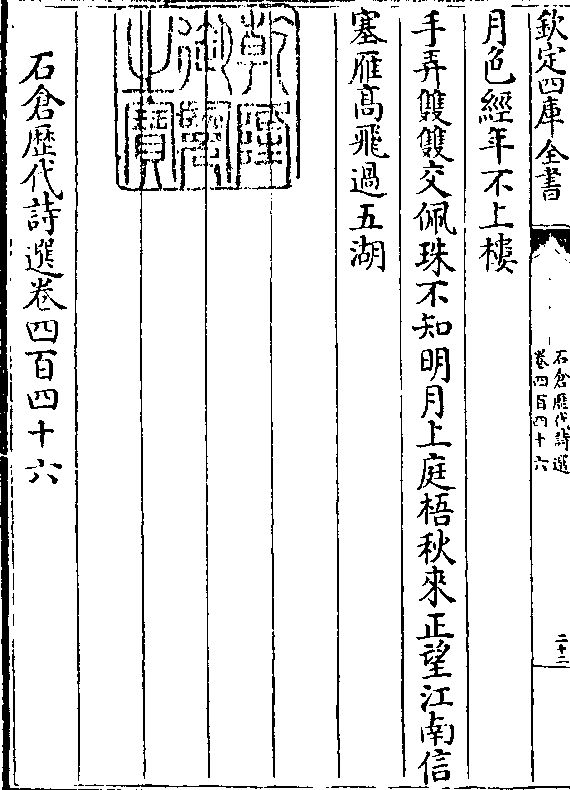 欽定四庫全書
石倉歴代詩選
卷四百四十六
二十三
月色經年不上樓
手弄雙雙交佩珠不知明月上庭梧秋來正望江南信
塞雁髙飛過五湖
乾隆御覽之寶
石倉歴代詩選卷四百四十六